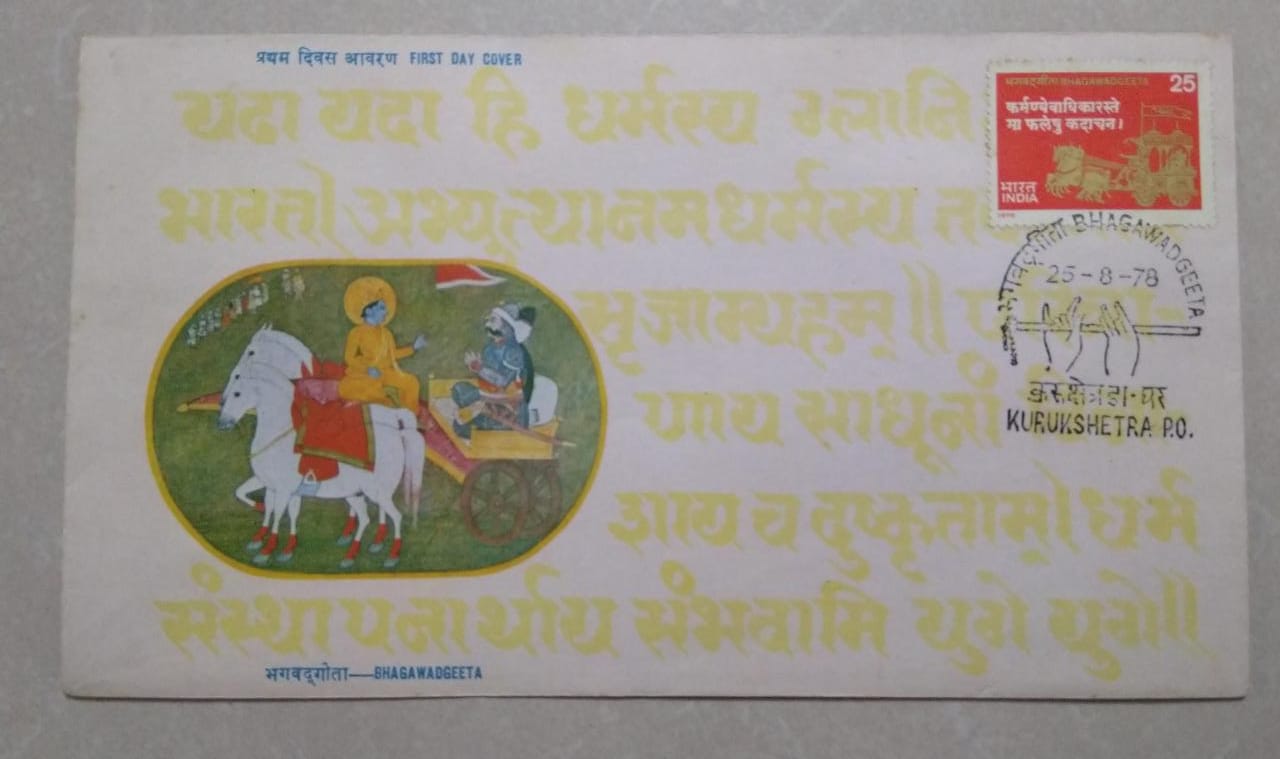 प्रथम दिवस आवरण FIRST DAY COVER
भगवद्गीता BHAGAWADGEETA 25
कर्मण्येवाधिकारस्ते
मा फलेषु कदाचन।
भारत
INDIA
1978
यदा यदा हि धर्मस्य ग्लानि
भारत। अभ्युत्थानमधर्मस्य त
सृजाम्यहम्॥
णाय साधूनां
शाय च दुष्कृताम्। धर्म
संस्थापनार्थाय संभवामि युगे युगे॥
भगवद्गीता BHAGAWADGEETA
25-8-78
कुरुक्षेत्र डा·घर
KURUKSHETRA P.O.
भगवद्गीता—BHAGAWADGEETA